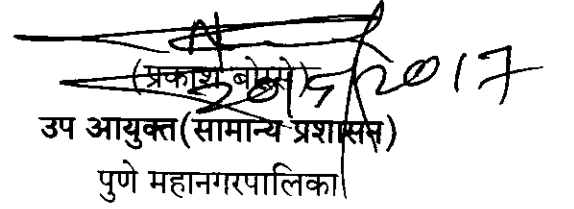 (प्रकाश बोरसे)
20/5/2017
उप आयुक्त(सामान्य प्रशासन)
पुणे महानगरपालिका